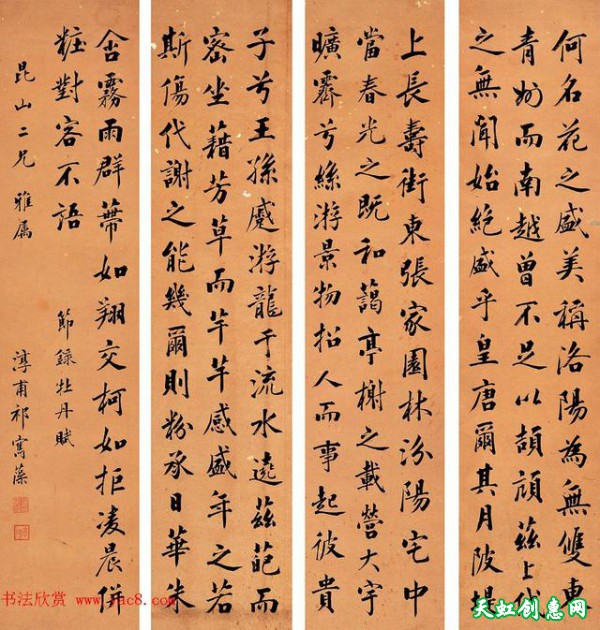 何名花之盛美稱洛陽為無雙東
青州而南越曾不足以頡頏茲上代
之無聞始絕盛乎皇唐爾其月陂堤
上長壽街東張家園林汾陽宅中
當春光之既和藹亭榭之載營大宇
曠霽兮絲游景物招人而事起彼貴
子兮王孫蹙游龍于流水遶茲葩而
密坐藉芳草而芊芊感盛年之若
斯傷代謝之能幾爾則粉承日華朱
含霧雨群蕚如翔交柯如拒凌晨併
粧對客不語 節錄牡丹賦
昆山二兄雅屬 淳甫祁寯藻
书法欣赏 www.yac8.com
天虹创惠网